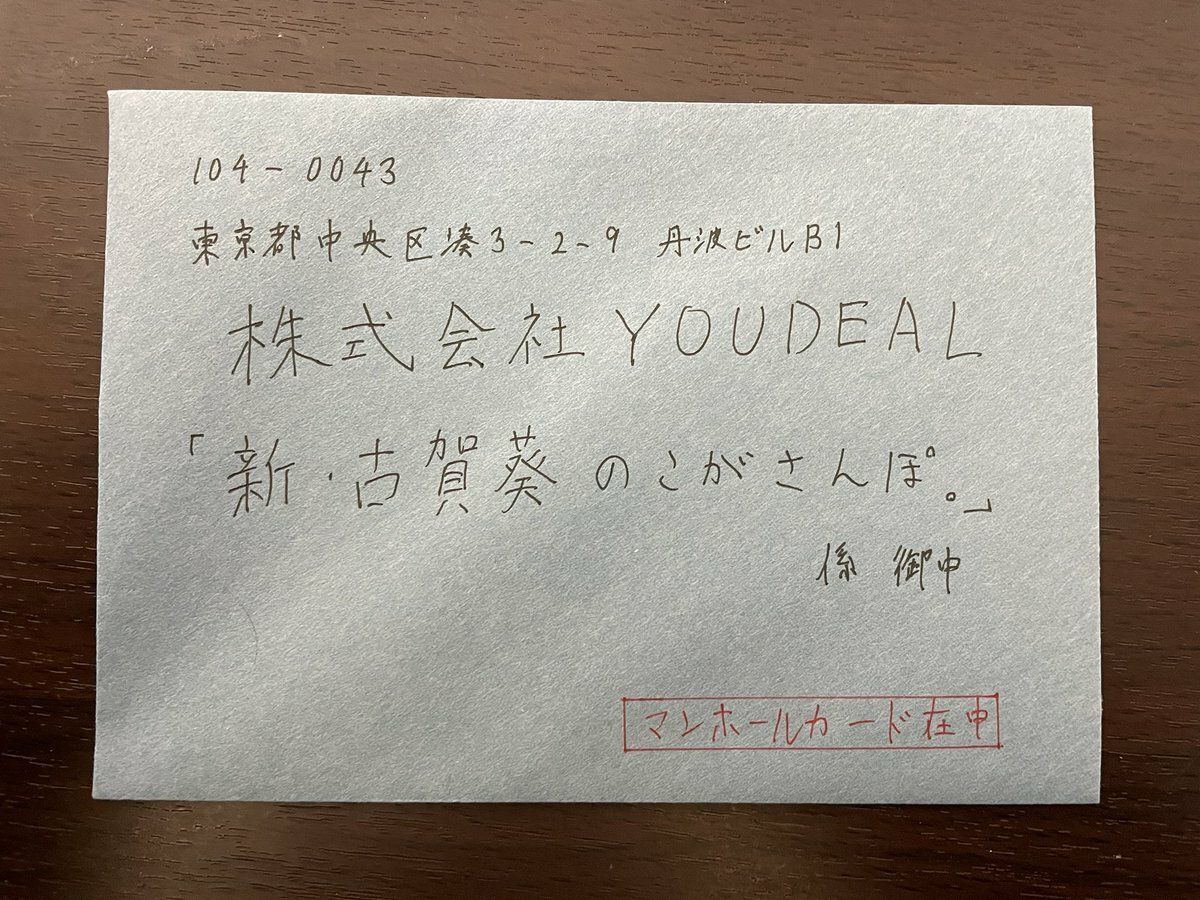 104-0043
東京都中央区湊3-2-9 丹波ビルB1
株式会社YOUDEAL
「新・古賀葵のこがさんぽ。」
係 御中
マンホールカード在中